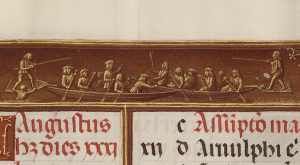 Augustus
hȝ dies xxxi
c Assūptō ma
xıı d Arnulphi e